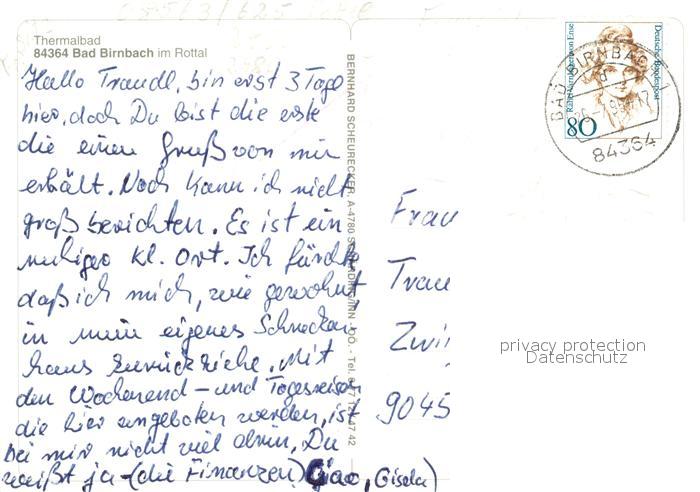 Thermalbad
84364 Bad Birnbach im Rottal
Hallo Traudl, bin erst 3 Tage
hier, doch Du bist die erste
die einen Gruß von mir
erhält. Noch kann ich nicht
groß berichten. Es ist ein
ruhiger kl. Ort. Ich fürchte
daß ich mich, wie gewohnt,
in mein eigenes Schnecken-
haus zurückziehe. Mit
den Wochenend- und Tagesreisen
die hier angeboten werden, ist
bei mir nicht viel drin, Du
weißt ja - (die Finanzen) Ciao, Gisela)
BERNHARD SCHEURECKER, A-4780 SCHÄRDING/INN
Deutsche Bundespost
Rahel Varnhagen von Ense
80
BAD BIRNBACH
84364
Frau
Trau
9045
privacy protection
Datenschutz